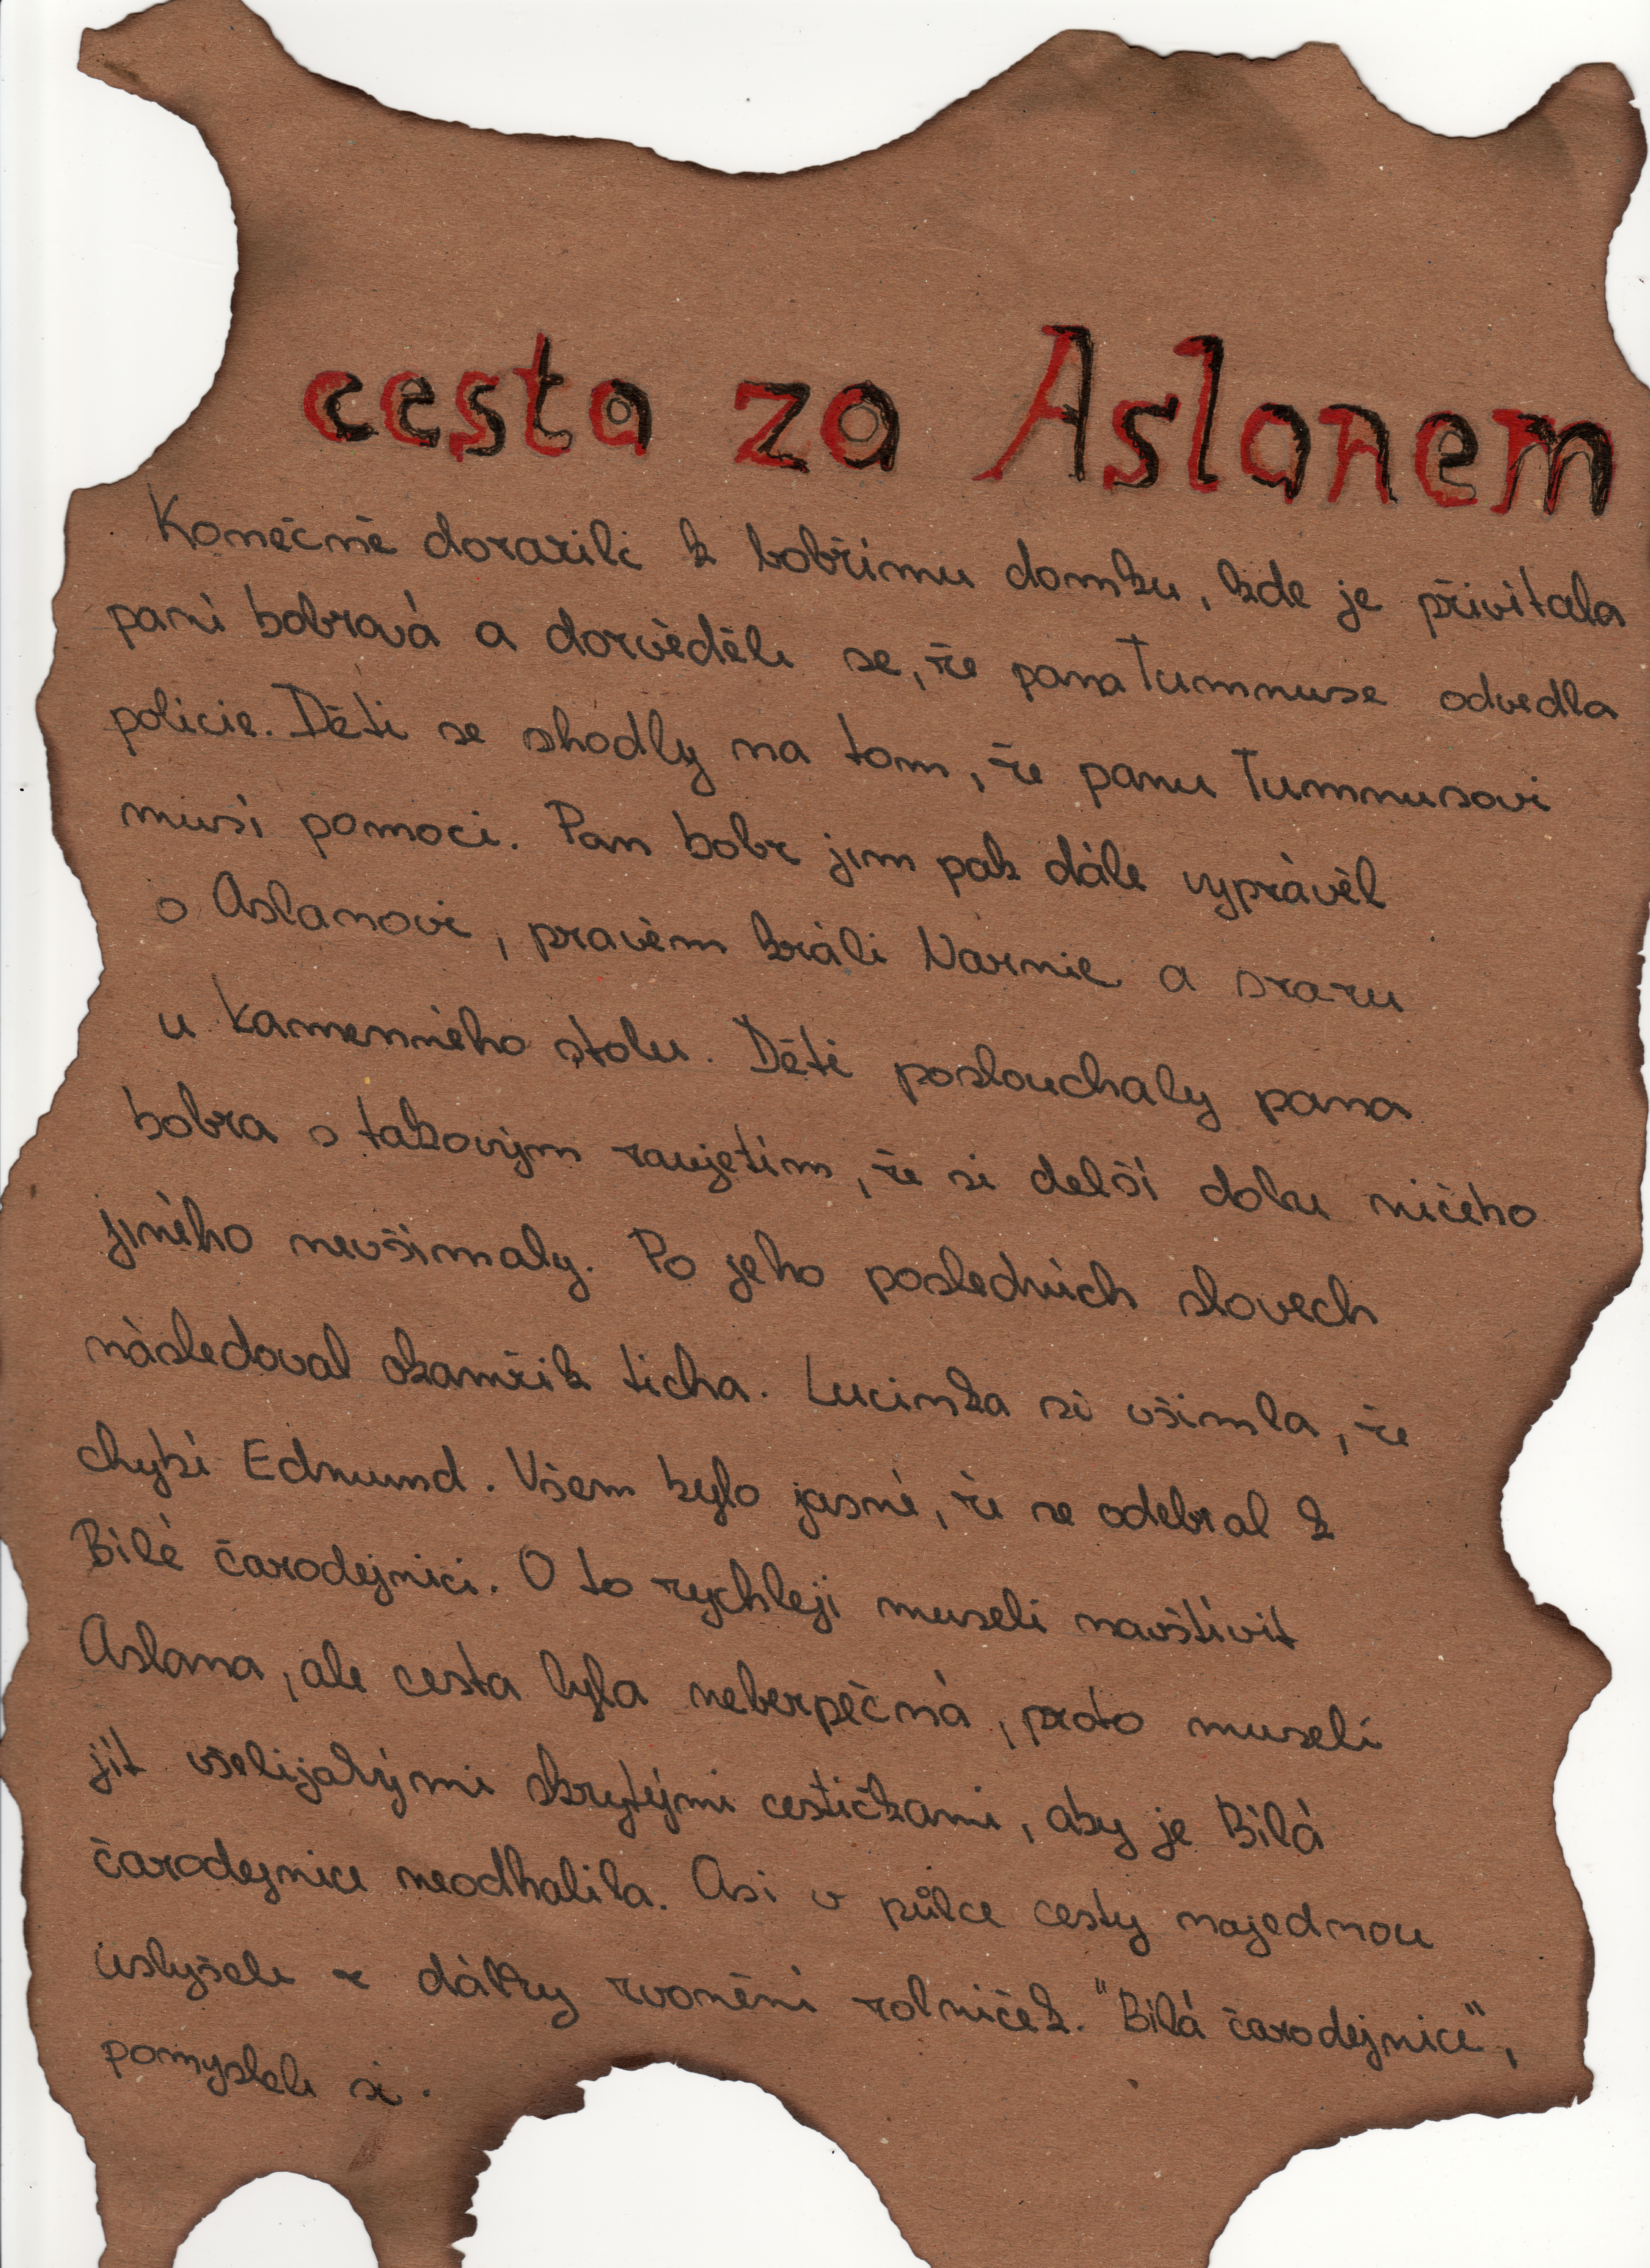 cesta za Aslanem
Konečně dorazili k bobřímu domku, kde je přivítala
paní bobrová a dozvěděli se, že pana Tumnuse odvedla
policie. Děti se shodly na tom, že panu Tumnusovi
musí pomoci. Pan bobr jim pak dále vyprávěl
o Aslanovi, pravém králi Narnie a srazu
u Kamenného stolu. Děti poslouchaly pana
bobra s takovým zaujetím, že si delší dobu ničeho
jiného nevšímaly. Po jeho posledních slovech
následoval okamžik ticha. Lucinka si všimla, že
chybí Edmund. Všem bylo jasné, že se odebral k
Bílé čarodejnici. O to rychleji museli navštívit
Aslana, ale cesta byla nebezpěčná, proto museli
jít všelijakými skrytými cestičkami, aby je Bílá
čarodejnice neodhalila. Asi v půlce cesty najednou
uslyšeli z dálky zvonění rolniček. "Bílá čarodejnice",
pomysleli si.